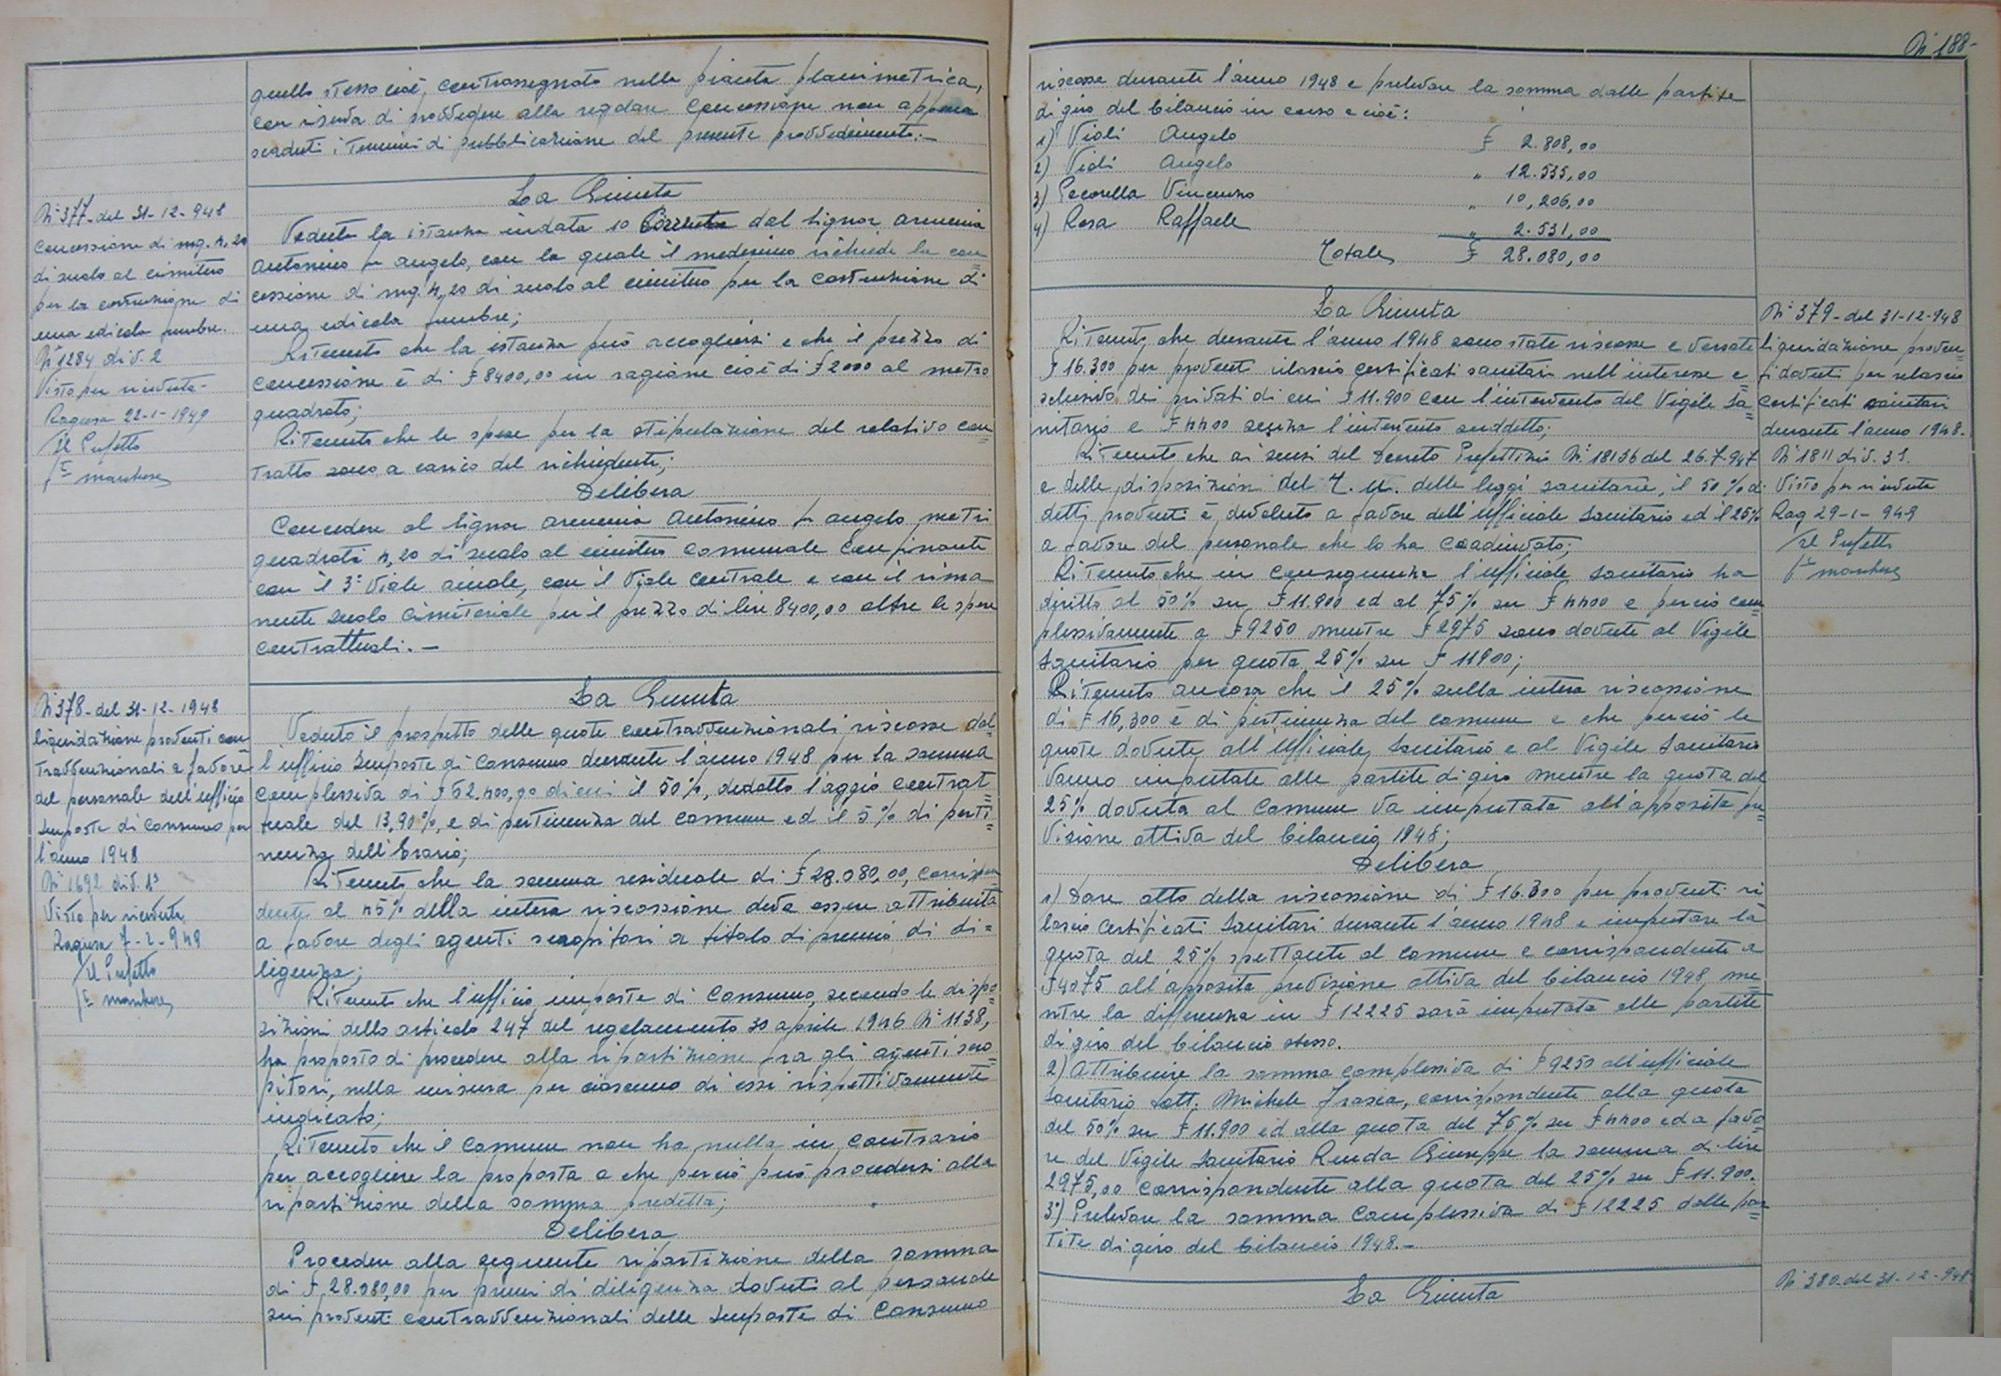 quello stesso cioè, contrassegnato nella pianta planimetrica,
con riserva di provvedere alla regolare concessione non appena
scaduti i termini di pubblicazione del presente provvedimento.—
N° 377- del 31-12-948
concessione di mq. 4,20
di suolo al cimitero
per la costruzione di
una edicola funebre.
N° 1284 div. 2
Visto per ricevuta-
Ragusa 22-1-1949
Il Prefetto
La Giunta
Veduta la istanza in data 10 corrente dal Signor Armenia
Antonino fu Angelo, con la quale il medesimo richiede la con=
cessione di mq 4,20 di suolo al cimitero per la costruzione di
una edicola funebre;
Ritenuto che la istanza può accogliersi e che il prezzo di
concessione è di £ 8400,00 in ragione cioè di £ 2000 al metro
quadrato;
Ritenuto che le spese per la stipulazione del relativo con=
tratto sono a carico del richiedente;
Delibera
Concedere al Signor Armenia Antonino fu Angelo metri
quadrati 4,20 di suolo al cimitero comunale confinante
con il 3° Viale, con il Viale centrale e con il rima
nente suolo cimiteriale per il prezzo di lire 8400,00 oltre le spese
contrattuali.—
N° 378- del 31-12-1948
liquidazione proventi con
travvenzionali a favore
del personale dell'ufficio
Imposte di Consumo per
l'anno 1948
N° 1692 div. 1ª
Visto per ricevuta
Ragusa 7-2-949
Il Prefetto
La Giunta
Veduto il prospetto delle quote contravvenzionali riscosse dal
l'ufficio Imposte di Consumo durante l'anno 1948 per la somma
complessiva di £ 62.400,00 di cui il 50%, dedotto l'aggio contrat=
tuale del 13,90%, e di pertinenza del comune ed il 5% di perti=
nenza dell'Erario;
Ritenuto che la somma residuale di £ 28.080,00, corrispon
dente al 45% della intera riscossione deve essere attribuita
a favore degli agenti scopritori a titolo di premio di di=
ligenza;
Ritenuto che l'ufficio imposte di Consumo, secondo le dispo=
sizioni dello articolo 247 del regolamento 30 aprile 1936 N° 1138,
ha proposto di procedere alla ripartizione fra gli agenti sco=
pritori, nella misura per ciascuno di essi rispettivamente
indicato;
Ritenuto che il Comune non ha nulla in contrario
per accogliere la proposta e che perciò può procedersi alla
ripartizione della somma predetta;
Delibera
Procedere alla seguente ripartizione della somma
di £ 28.080,00 per premi di diligenza dovuti al personale
sui proventi contravvenzionali delle Imposte di Consumo
N° 188-
riscosse durante l'anno 1948 e prelevare la somma dalle partite
di giro del bilancio in corso e cioè:
1) Violi Angelo £ 2.808,00
2) Violi Angelo " 12.535,00
3) Pecorella Vincenzo " 10,206,00
4) Rosa Raffaele " 2.531,00
Totale £ 28.080,00
La Giunta
Ritenuto che durante l'anno 1948 sono state riscosse e versate
£ 16.300 per proventi rilascio certificati sanitari nell'interesse e=
sclusivo dei privati di cui £ 11.900 con l'intervento del Vigile Sa=
nitario e £ 4400 senza l'intervento suddetto;
Ritenuto che ai sensi del Decreto Prefettizio N° 18136 del 26.7.947
e delle disposizioni del T. U. delle leggi sanitarie, il 50% di
detti proventi è devoluto a favore dell'Ufficiale Sanitario ed il 25%
a favore del personale che lo ha coadiuvato;
Ritenuto che in conseguenza l'ufficiale sanitario ha
diritto al 50% su £ 11.900 ed al 75% su £ 4400 e perciò com
plessivamente a £ 9250 mentre £ 2975 sono dovute al Vigile
Sanitario per quota 25% su £ 11900;
Ritenuto ancora che il 25% sulla intera riscossione
di £ 16,300 è di pertinenza del comune e che perciò le
quote dovute all'Ufficiale Sanitario e al Vigile Sanitario
vanno imputate alle partite di giro mentre la quota del
25% dovuta al Comune va imputata all'apposita pre
visione attiva del bilancio 1948;
Delibera
1) Dare atto della riscossione di £ 16.300 per proventi ri
lascio certificati Sanitari durante l'anno 1948 e imputare la
quota del 25% spettante al comune e corrispondente a
£ 4075 all'apposita previsione attiva del bilancio 1948, me
ntre la differenza in £ 12225 sarà imputata alle partite
di giro del bilancio stesso.
2) Attribuire la somma complessiva di £ 9250 all'ufficiale
Sanitario Dott. Michele Frasca, corrispondente alla quota
del 50% su £ 11.900 ed alla quota del 75% su £ 4400 ed a favo
re del Vigile Sanitario Renda Giuseppe la somma di lire
2975,00 corrispondente alla quota del 25% su £ 11.900.
3°) Prelevare la somma complessiva di £ 12225 dalle par=
tite di giro del bilancio 1948.—
N° 379- del 31-12-948
liquidazione proven=
ti dovuti per rilascio
certificati sanitari
durante l'anno 1948.
N° 1811 div. 31.
Visto per ricevuta
Rag 29-1-949
Il Prefetto
La Giunta
N° 380- del 31-12-948